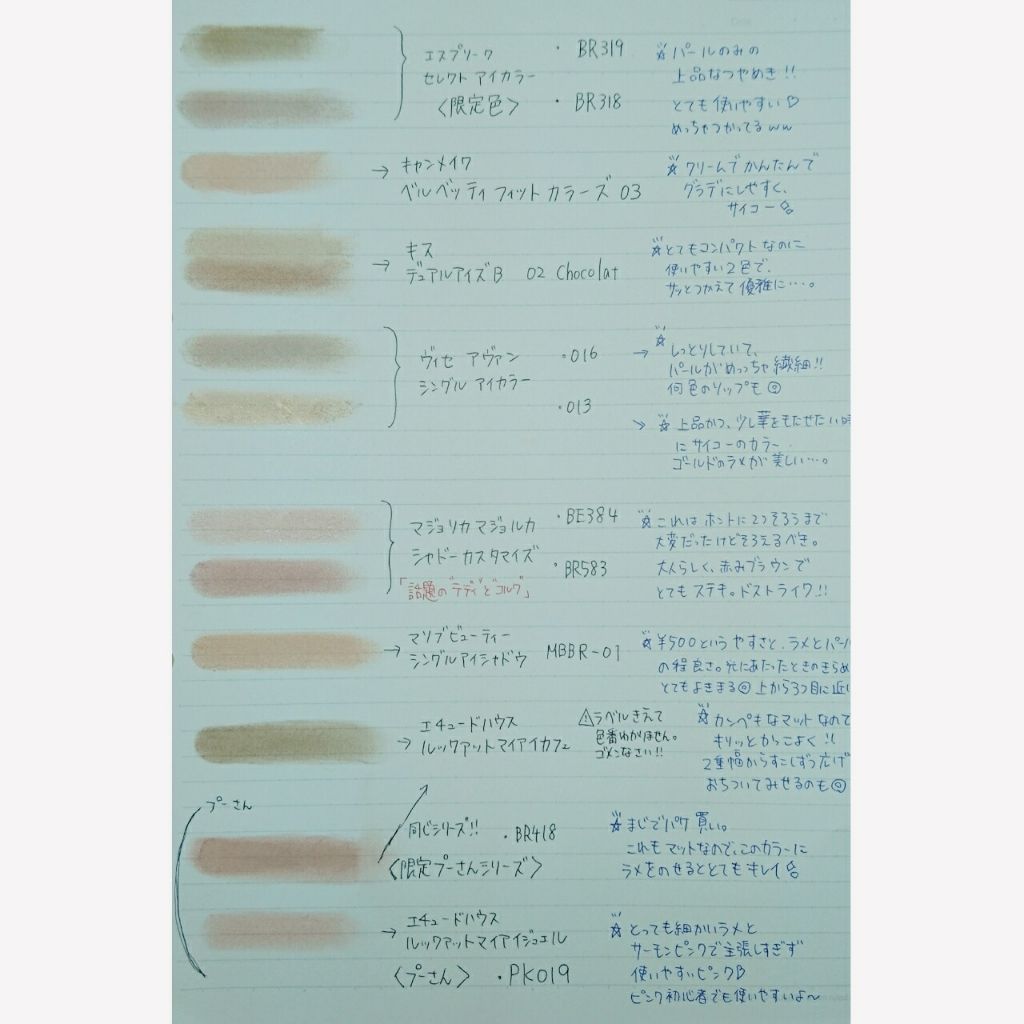 エスプリーク
セレクト アイカラー
〈限定色〉
・BR319
・BR318
☆パールのみの
上品なつやめき!!
とても使いやすい♡
めっちゃつかってるww
→ キャンメイク
ベルベッティフィットカラーズ 03
☆クリームでかんたんで
グラデにしやすく、
サイコー
→ キス
デュアルアイズB 02 Chocolat
☆とてもコンパクトなのに
使いやすい2色で、
サッとつかえて優雅に…。
ヴィセ アヴァン
シングル アイカラー
・016
・013
→ ☆しっとりしていて、
パールがめっちゃ繊細!!
何色のリップも◎
→ ☆上品かつ、少し華をもたせたい時
にサイコーのカラー
ゴールドのラメが美しい…。
マジョリカ マジョルカ
シャドーカスタマイズ
「話題の"テディ"と"コルク"」
・BE384
・BR583
☆これはホントに2つそろうまで
大変だったけどそろえるべき。
大人らしく、赤みブラウンで
とてもステキ。ドストライク!!
→ マリブビューティー
シングルアイシャドウ MBBR-01
☆¥500というやすさと、ラメとパール
の程良さ。光にあたったときのきらめ
とてもよきまる◎ 上から3つ目に近い
→ エチュードハウス
ルックアットマイアイカフェ
⚠ラベルきえて
色番わかりません。
ゴメンなさい!!
☆カンペキなマットなので
キリッとかっこよく!!
2重幅からすこしずつ広げ
おちついてみせるのも◎
プーさん
同じシリーズ!! ・BR418
〈限定プーさんシリーズ〉
☆まじでパケ買い。
これもマットなので、このカラーに
ラメをのせるととてもキレイ
→ エチュードハウス
ルックアットマイアイジュエル
〈プーさん〉 ・PK019
☆とっても細かいラメと
サーモンピンクで主張しすぎず
使いやすいピンク♡
ピンク初心者でも使いやすいよ〜